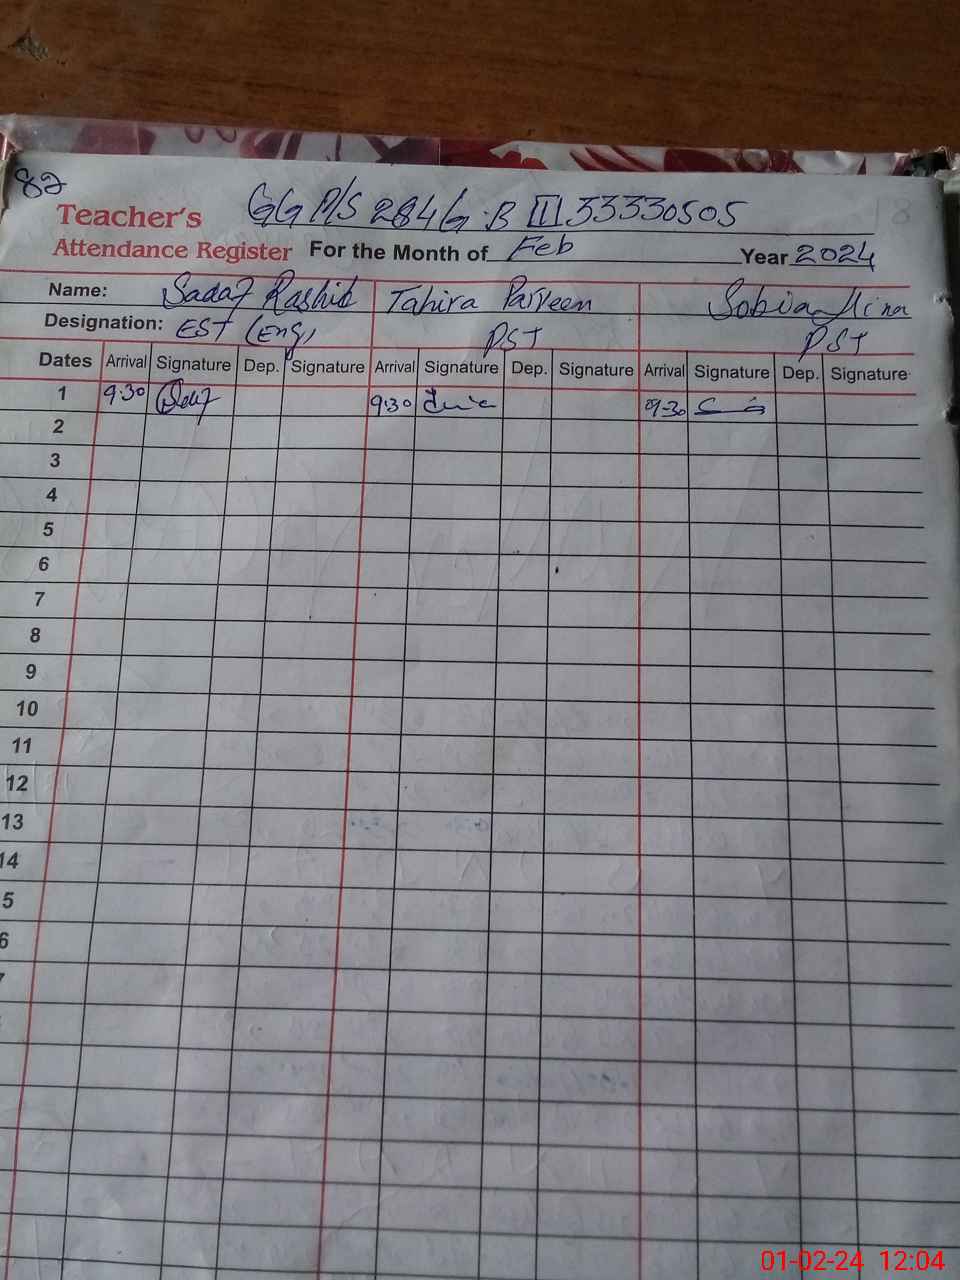 82
GG P/S 284 G.B II 33330505
Teacher's
Attendance Register For the Month of Feb Year 2024
Name: Sadaf Rashid Tahira Parveen Sobia
Designation: EST (Eng) PST PST
Dates Arrival Signature Dep. Signature Arrival Signature Dep. Signature Arrival Signature Dep. Signature
1 9:30 9:30 9:30
2
3
4
5
6
7
8
9
10
11
12
13
14
5
6
7
01-02-24 12:04